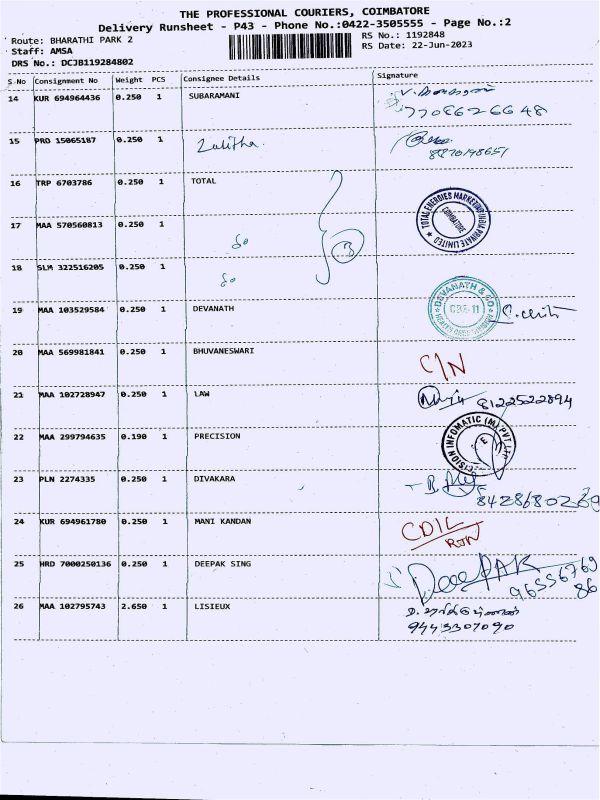 THE PROFESSIONAL COURIERS, COIMBATORE
Delivery Runsheet - P43 - Phone No.:0422-3505555 - Page No.:2
Route: BHARATHI PARK 2
RS No.: 1192848
Staff: AMSA
RS Date: 22-Jun-2023
DRS No.: DCJB119284802
S.No Consignment No Weight PCS Consignee Details Signature
14 KUR 694964436 0.250 1 SUBARAMANI
7708626648
15 PRD 15065187 0.250 1 Lalitha
8870198651
16 TRP 6703786 0.250 1 TOTAL
TOTAL ENERGIES MARKETING INDIA PRIVATE LIMITED
COIMBATORE
17 MAA 570560813 0.250 1 do
B
18 SLM 322516205 0.250 1 do
19 MAA 103529584 0.250 1 DEVANATH
DEVANATH & CO
CBE-11
20 MAA 569981841 0.250 1 BHUVANESWARI C/N
21 MAA 102728947 0.250 1 LAW 8122522894
22 MAA 299794635 0.190 1 PRECISION
PRECISION INFOMATIC (M) PVT LTD
23 PLN 2274335 0.250 1 DIVAKARA
8428680269
24 KUR 694961780 0.250 1 MANI KANDAN CDIL
RTN
25 HRD 7000250136 0.250 1 DEEPAK SING DeePAK
96556769
86
26 MAA 102795743 2.650 1 LISIEUX
9443307090